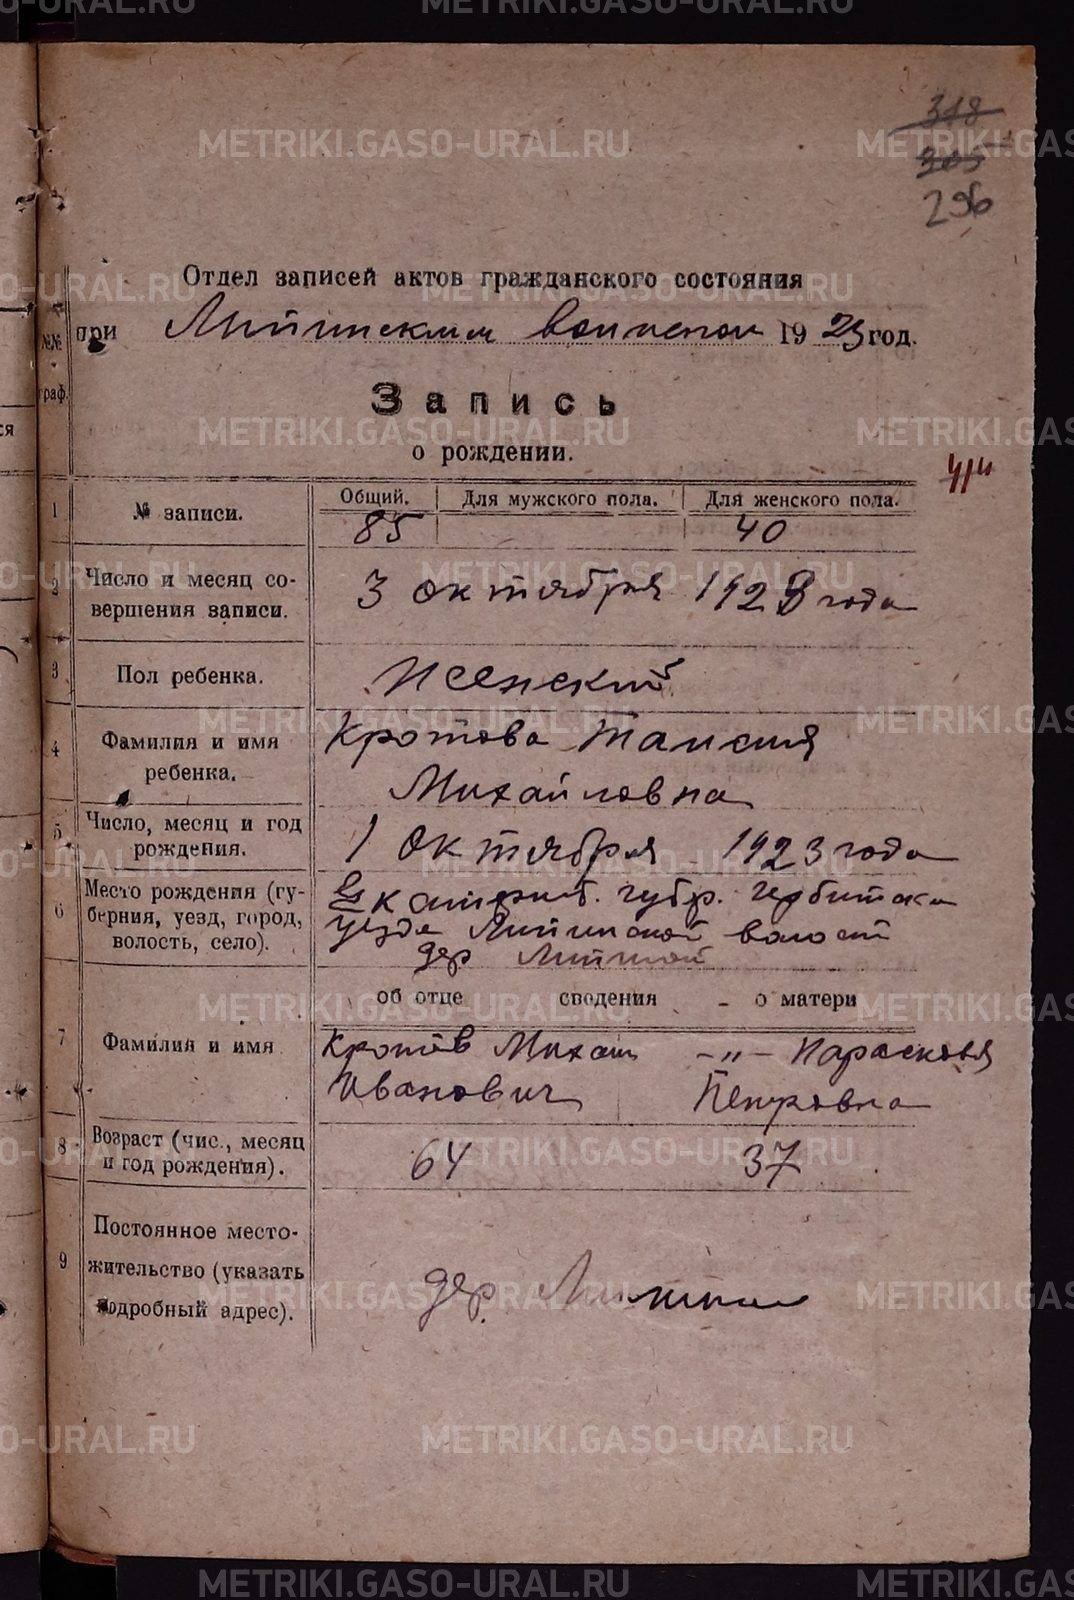 METRIKI.GASO-URAL.RU
318
305
296
Отдел записей актов гражданского состояния
при 1923 год.
№№ граф.
Запись
о рождении.
1 № записи. Общий. Для мужского пола. Для женского пола.
85 40
2 Число и месяц совершения записи. 3 октября 1923 года
3 Пол ребенка. Женский
4 Фамилия и имя ребенка. Кротова Таисия
Михайловна
5 Число, месяц и год рождения. 1 октября 1923 года
6 Место рождения (губерния, уезд, город, волость, село). Екатеринб. губр. Ирбитска
уезда волости
дер
об отце сведения о матери
7 Фамилия и имя Кротов Михаил -„- Парасковья
Иванович Петровна
8 Возраст (чис., месяц и год рождения). 64 37
9 Постоянное местожительство (указать подробный адрес). дер.